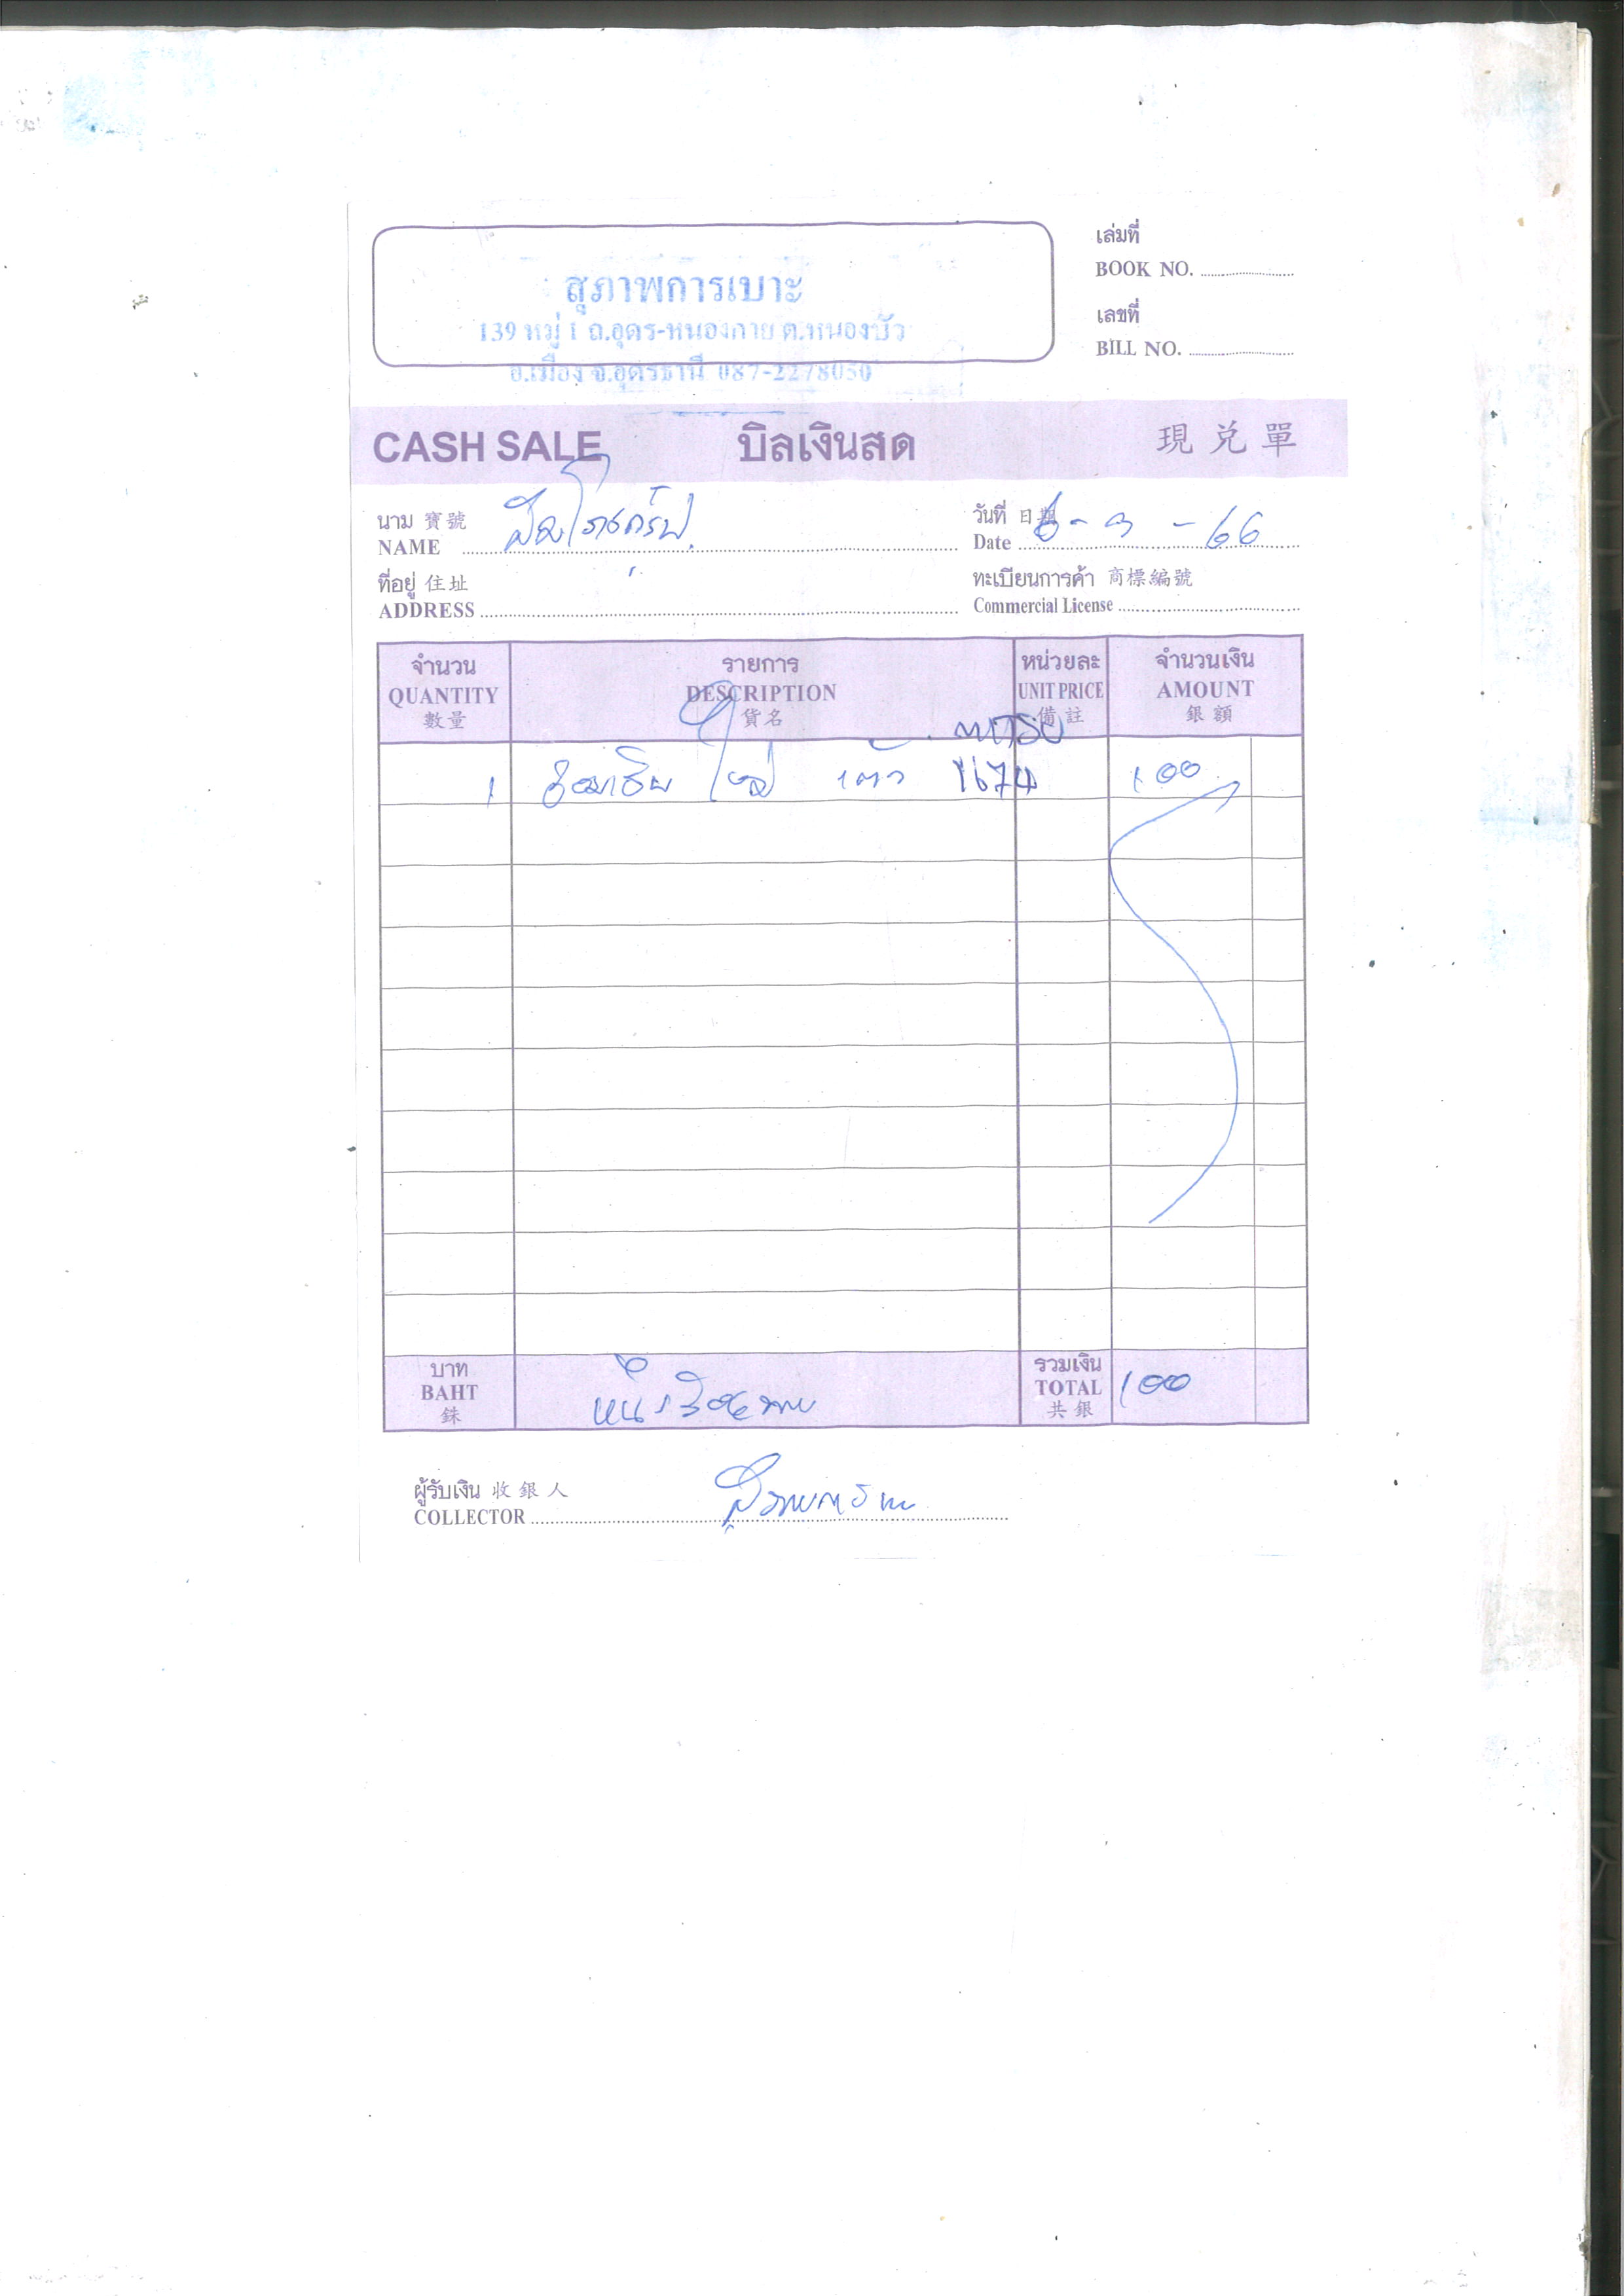 เล่มที่
BOOK NO.
เลขที่
BILL NO.
สุภาพการเบาะ
139 หมู่ 1 ถ.อุดร-หนองคาย ต.หนองบัว
อ.เมือง จ.อุดรธานี 087-2278030
CASH SALE บิลเงินสด 現兌單
นาม 寶號
NAME
วันที่ 日期
Date 6-3-66
ที่อยู่ 住址
ADDRESS
ทะเบียนการค้า 商標編號
Commercial License
จำนวน รายการ หน่วยละ จำนวนเงิน
QUANTITY DESCRIPTION UNIT PRICE AMOUNT
數量 貨名 備註 銀額
1 ซ่อมซิบ 1674 100
บาท
BAHT
銖
หนึ่งร้อยบาท
รวมเงิน
TOTAL 100
共銀
ผู้รับเงิน 收銀人
COLLECTOR